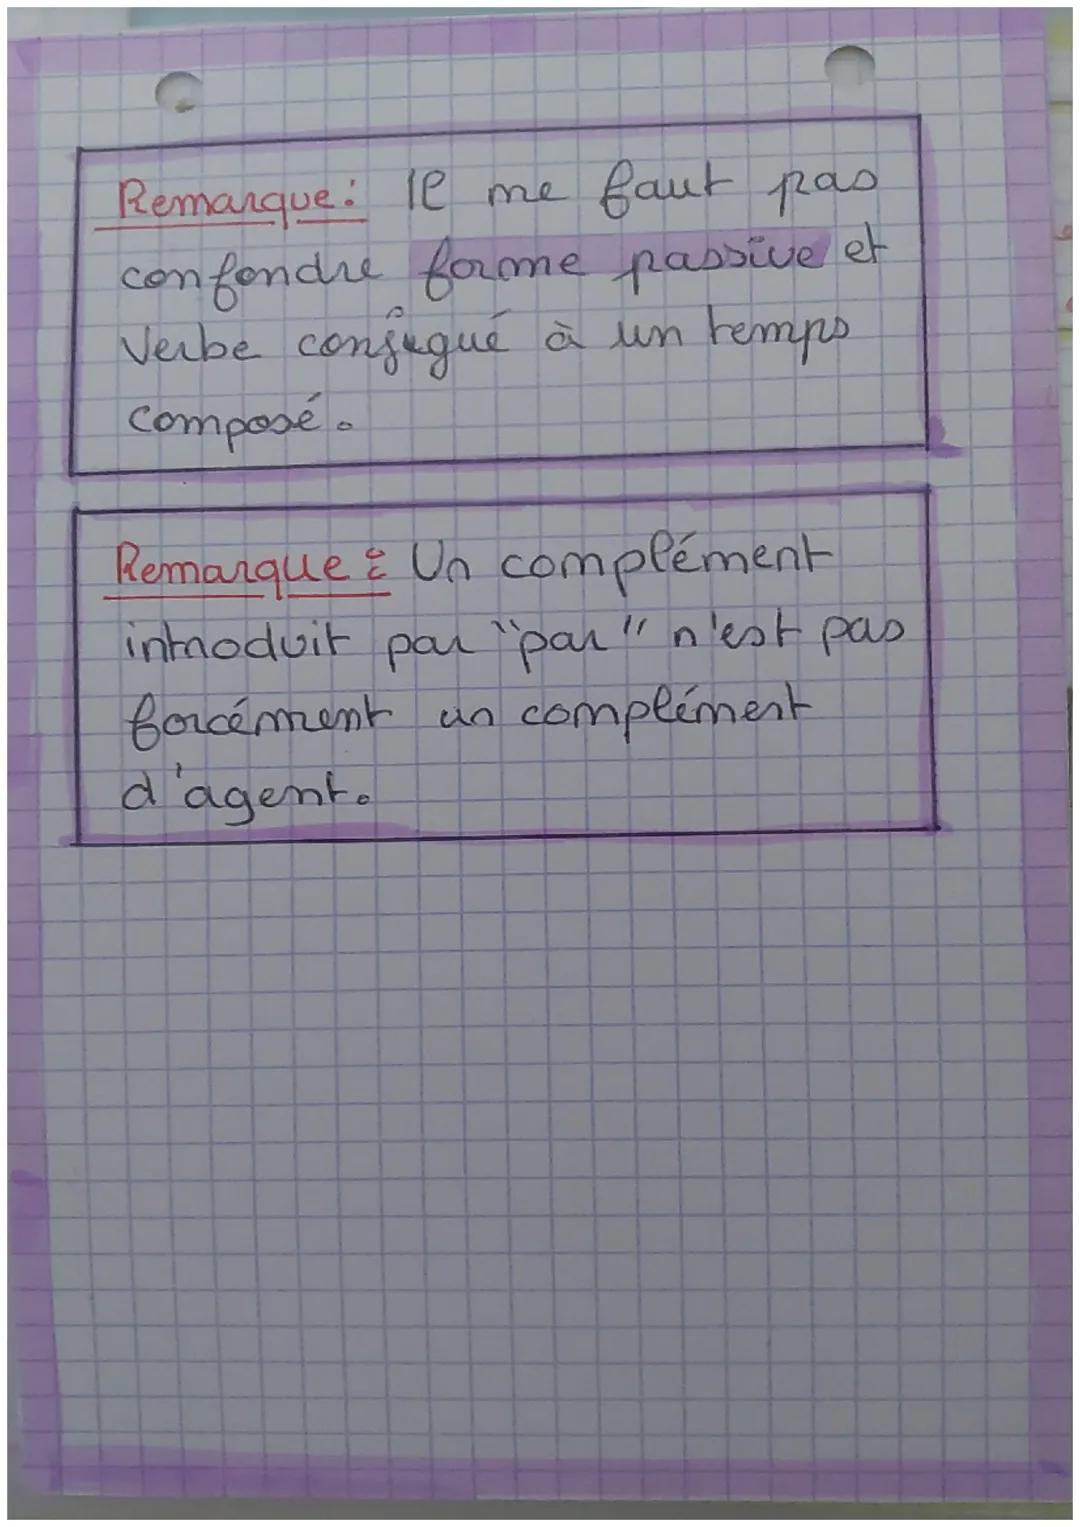 Remarque: Il ne faut pas
confondre forme passive et
Verbe conjugué à un temps
composé.
Remarque: Un complément
introduit par "par" n'est pas
forcément un complément
d'agent.